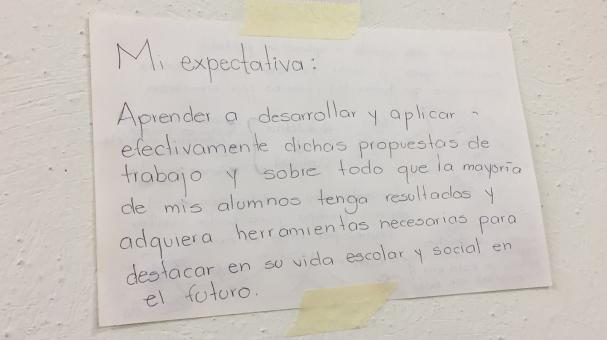 Mi expectativa:
Aprender a desarrollar y aplicar
efectivamente dichas propuestas de
trabajo y sobre todo que la mayoría
de mis alumnos tenga resultados y
adquiera herramientas necesarias para
destacar en su vida escolar y social en
el futuro.